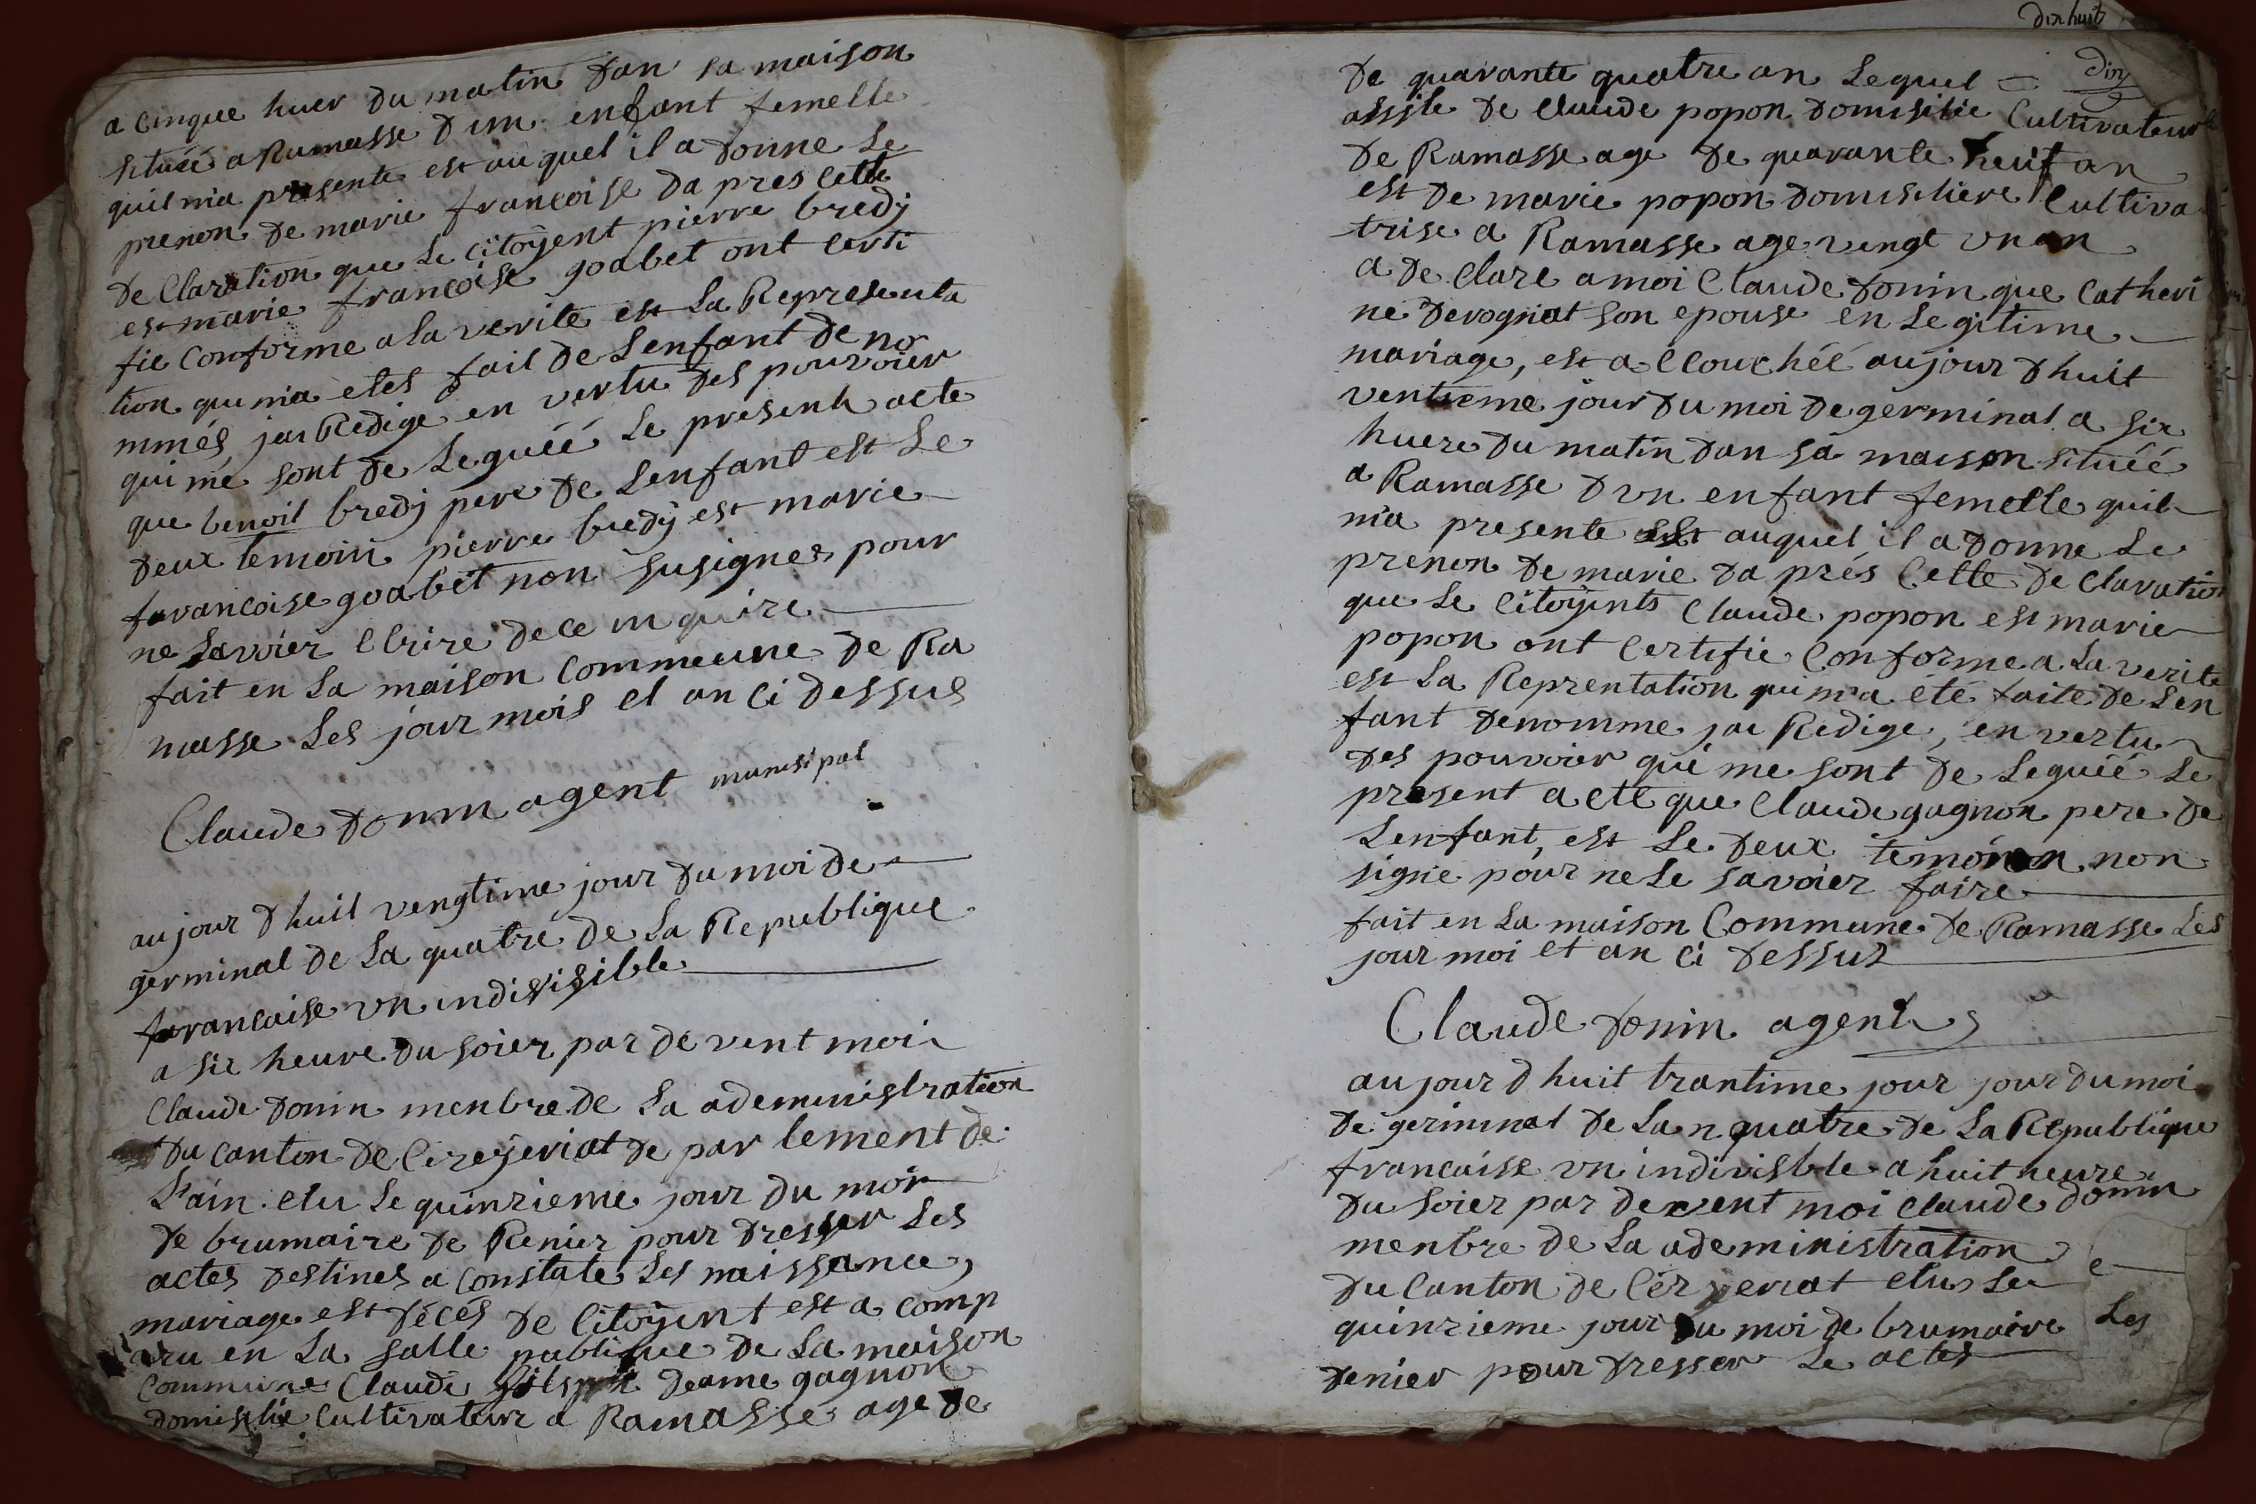 a cinque huer du matin dan sa maison
situéé a Ramasse d'un enfant femelle
quil m'a presente est auquel il a donne le
prenon de marie francoise da pres cette
de Claration que le citoÿent pierre bredÿ
est marie francoise goabet ont certi
fie conforme a la verite est la Representa
tion qui m'a etes fait de lenfant de no
mmés jai Redige en vertu des pouvoier
qui me sont de leguéé le presente acte
que benoit bredÿ pere de lenfant est le
deux temoin pierre bredÿ est marie
francoise goabet non susignes pour
ne savoier ecrire de ce
fait en la maison commeune de Ra
masse les jour mois et an ci dessus
Claude donin agent munisipal
au jour d huit vengtime jour du moi de
germinal de la quatre de la Republique
francaise un indivisible
a sie heure du soier par de vent moi
Claude donin menbre de la adeministration
du canton de Cezeyeriat de par lement de
l'ain elu le quinzieme jour du moi
de brumaire de Renier pour dresser les
actes destines a constate les naissance,
mariage est déces de citoÿent est a comp
aru en la salle publique de la maison
commune Claude deame gagnon
domisilie Cultivateur a Ramasse age de
dix huit
dix
de quarante quatre an lequel
assite de claude popon domisilie Cultivateur
de Ramasse age de quarante neuf an
est de marie popon domisiliere Cultiva
trise a Ramasse age vengt un an
a de clare a moi Claude donin que Catheri
ne derogniat son epouse en legitime
mariage, est a ccouchéé aujour d huit
ventieme jour du moi de germinal a six
huere du matin dan sa maison situéé
a Ramasse d un enfant femelle quil
m'a presente est auquel il a donne le
prenon de marie da prés cette de claration
que le citoÿents claude popon est marie
popon ont certifie conforme a la verite
est la Reprentation qui m'a été faite de len
fant denomme jai Redige, en vertu
des pouvoier qui me sont de leguéé le
present acte que claude gagnon pere de
lenfant, est le deux temoin non
signe pour ne le savoier faire
fait en la maison Commune de Ramasse les
jour moi et an ci dessus
Claude donin agent
au jour d huit trantime jour jour du moi
de germinal de lan quatre de la Republique
francaise un indivisble a huit heure
du soier par devent moi claude donin
menbre de la adeministration
du canton de Cezyeriat elus le
quinzieme jour du moi de brumaire
denier pour dresser le actes
e
les